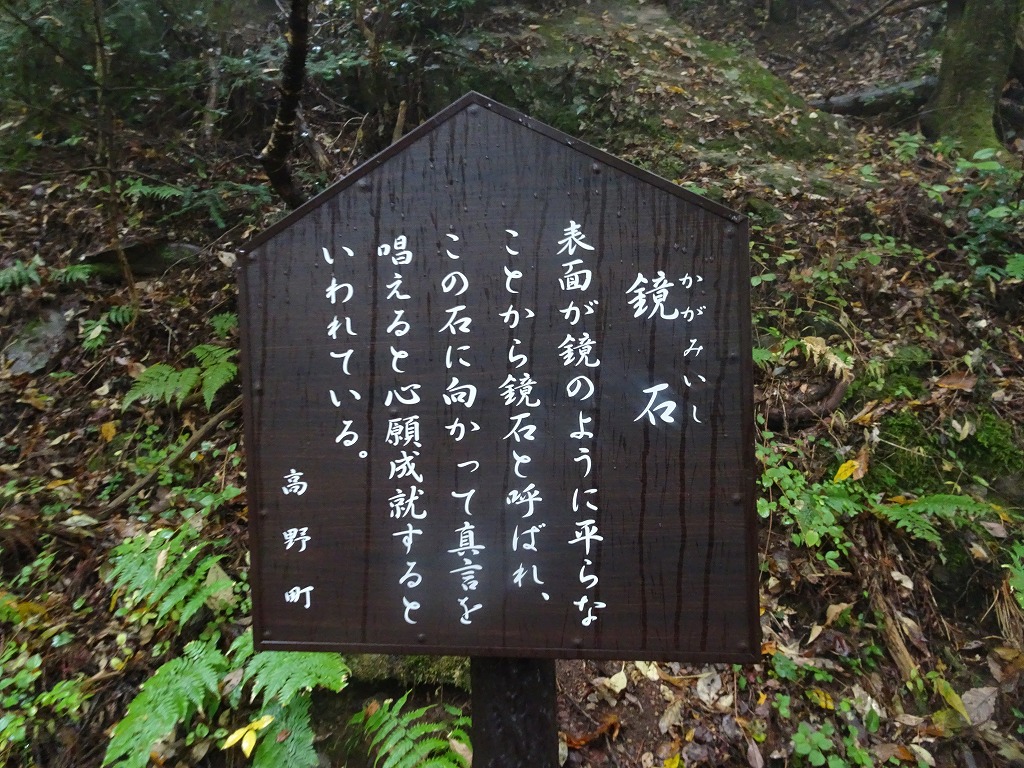 かがみいし
鏡石
表面が鏡のように平らな
ことから鏡石と呼ばれ、
この石に向かって真言を
唱えると心願成就すると
いわれている。
高野町